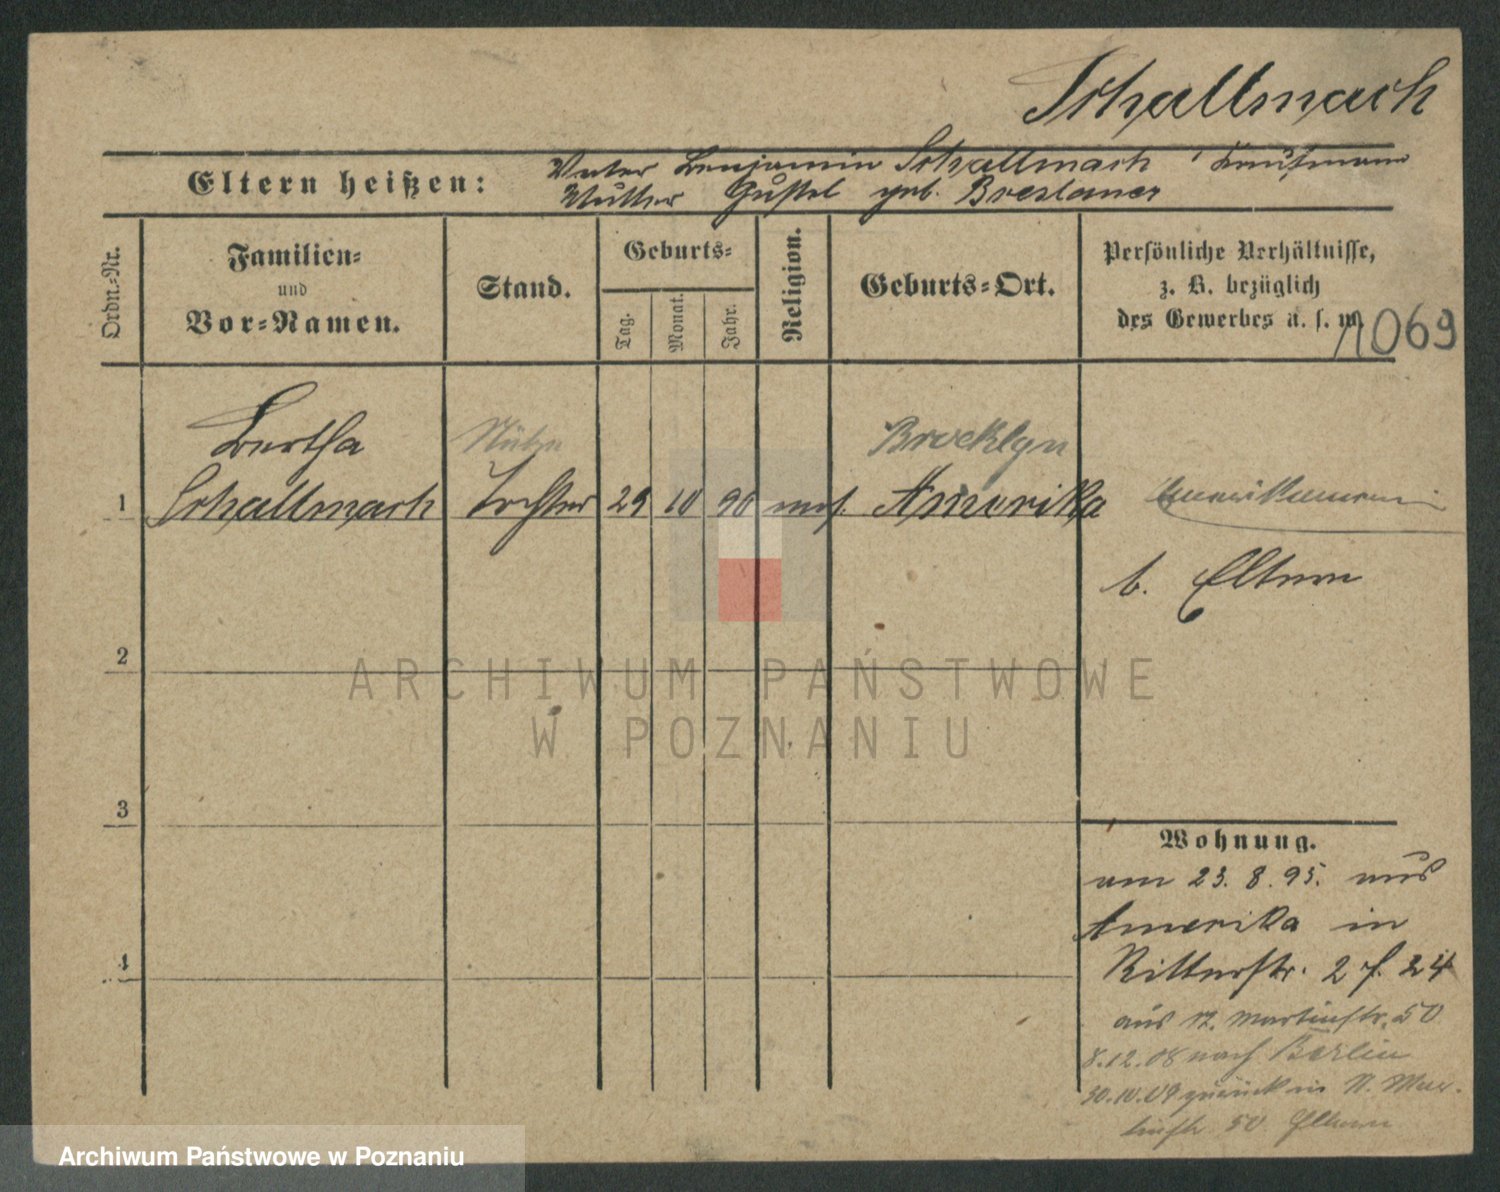 Schallmach
Eltern heißen:
Vater Benjamin Schallmach, Kaufmann
Mutter Gustel geb. Breslauer
Ordn.-Nr.
Familien-
und
Vor-Namen.
Stand.
Geburts-
Tag.
Monat.
Jahr.
Religion.
Geburts-Ort.
Persönliche Verhältnisse,
z. B. bezüglich
des Gewerbes u. s. w.
1069
Bertha
Stütze
Brooklyn
1 Schallmach Tochter 29 10 90 mos. Amerika Amerikanerin
b. Eltern
2
3
4
Wohnung.
am 23.8.95. aus
Amerika in
Ritterstr. 2 f. 24
aus Martinstr. 50
8.12.08 nach Berlin
30.10.09 zurück in Mar-
tinstr. 50 Eltern
ARCHIWUM PAŃSTWOWE
W POZNANIU
Archiwum Państwowe w Poznaniu